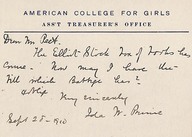 AMERICAN COLLEGE FOR GIRLS
ASST TREASURER'S OFFICE
Dear Mr Peet.
The Elliott Stock Box of books has
come. Now may I have the
bill which Battige has?
Very sincerely
Ida W. Prime
Sept 25 - 1910